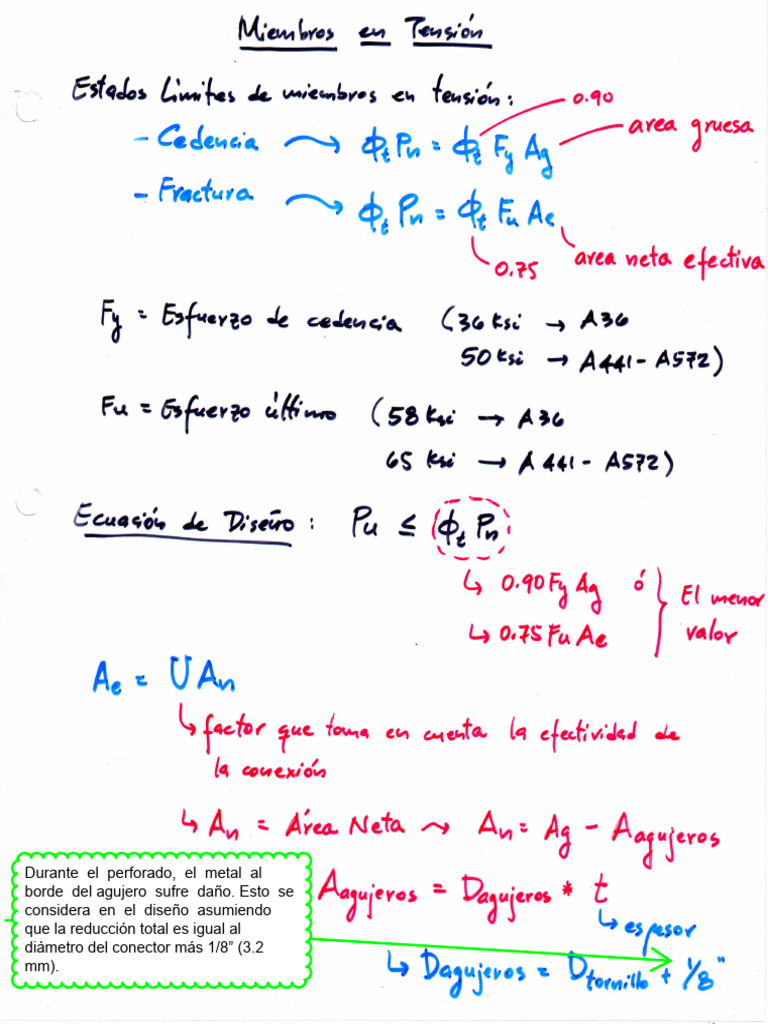 Miembros en Tensión
Estados Limites de miembros en tensión:
0.90
- Cedencia → ϕt Pn = ϕt Fy Ag
area gruesa
- Fractura → ϕt Pn = ϕt Fu Ae
0.75
area neta efectiva
Fy = Esfuerzo de cedencia (36 ksi → A36
50 ksi → A441 - A572)
Fu = Esfuerzo último (58 ksi → A36
65 ksi → A441 - A572)
Ecuación de Diseño: Pu ≤ ϕt Pn
↳ 0.90 Fy Ag ó
↳ 0.75 Fu Ae
El menor
valor
Ae = U An
↳ factor que toma en cuenta la efectividad de
la conexión
↳ An = Área Neta ~ An = Ag - Aagujeros
Aagujeros = Dagujeros * t
↳ espesor
↳ Dagujeros = Dtornillo + 1/8"
Durante el perforado, el metal al
borde del agujero sufre daño. Esto se
considera en el diseño asumiendo
que la reducción total es igual al
diámetro del conector más 1/8” (3.2
mm).